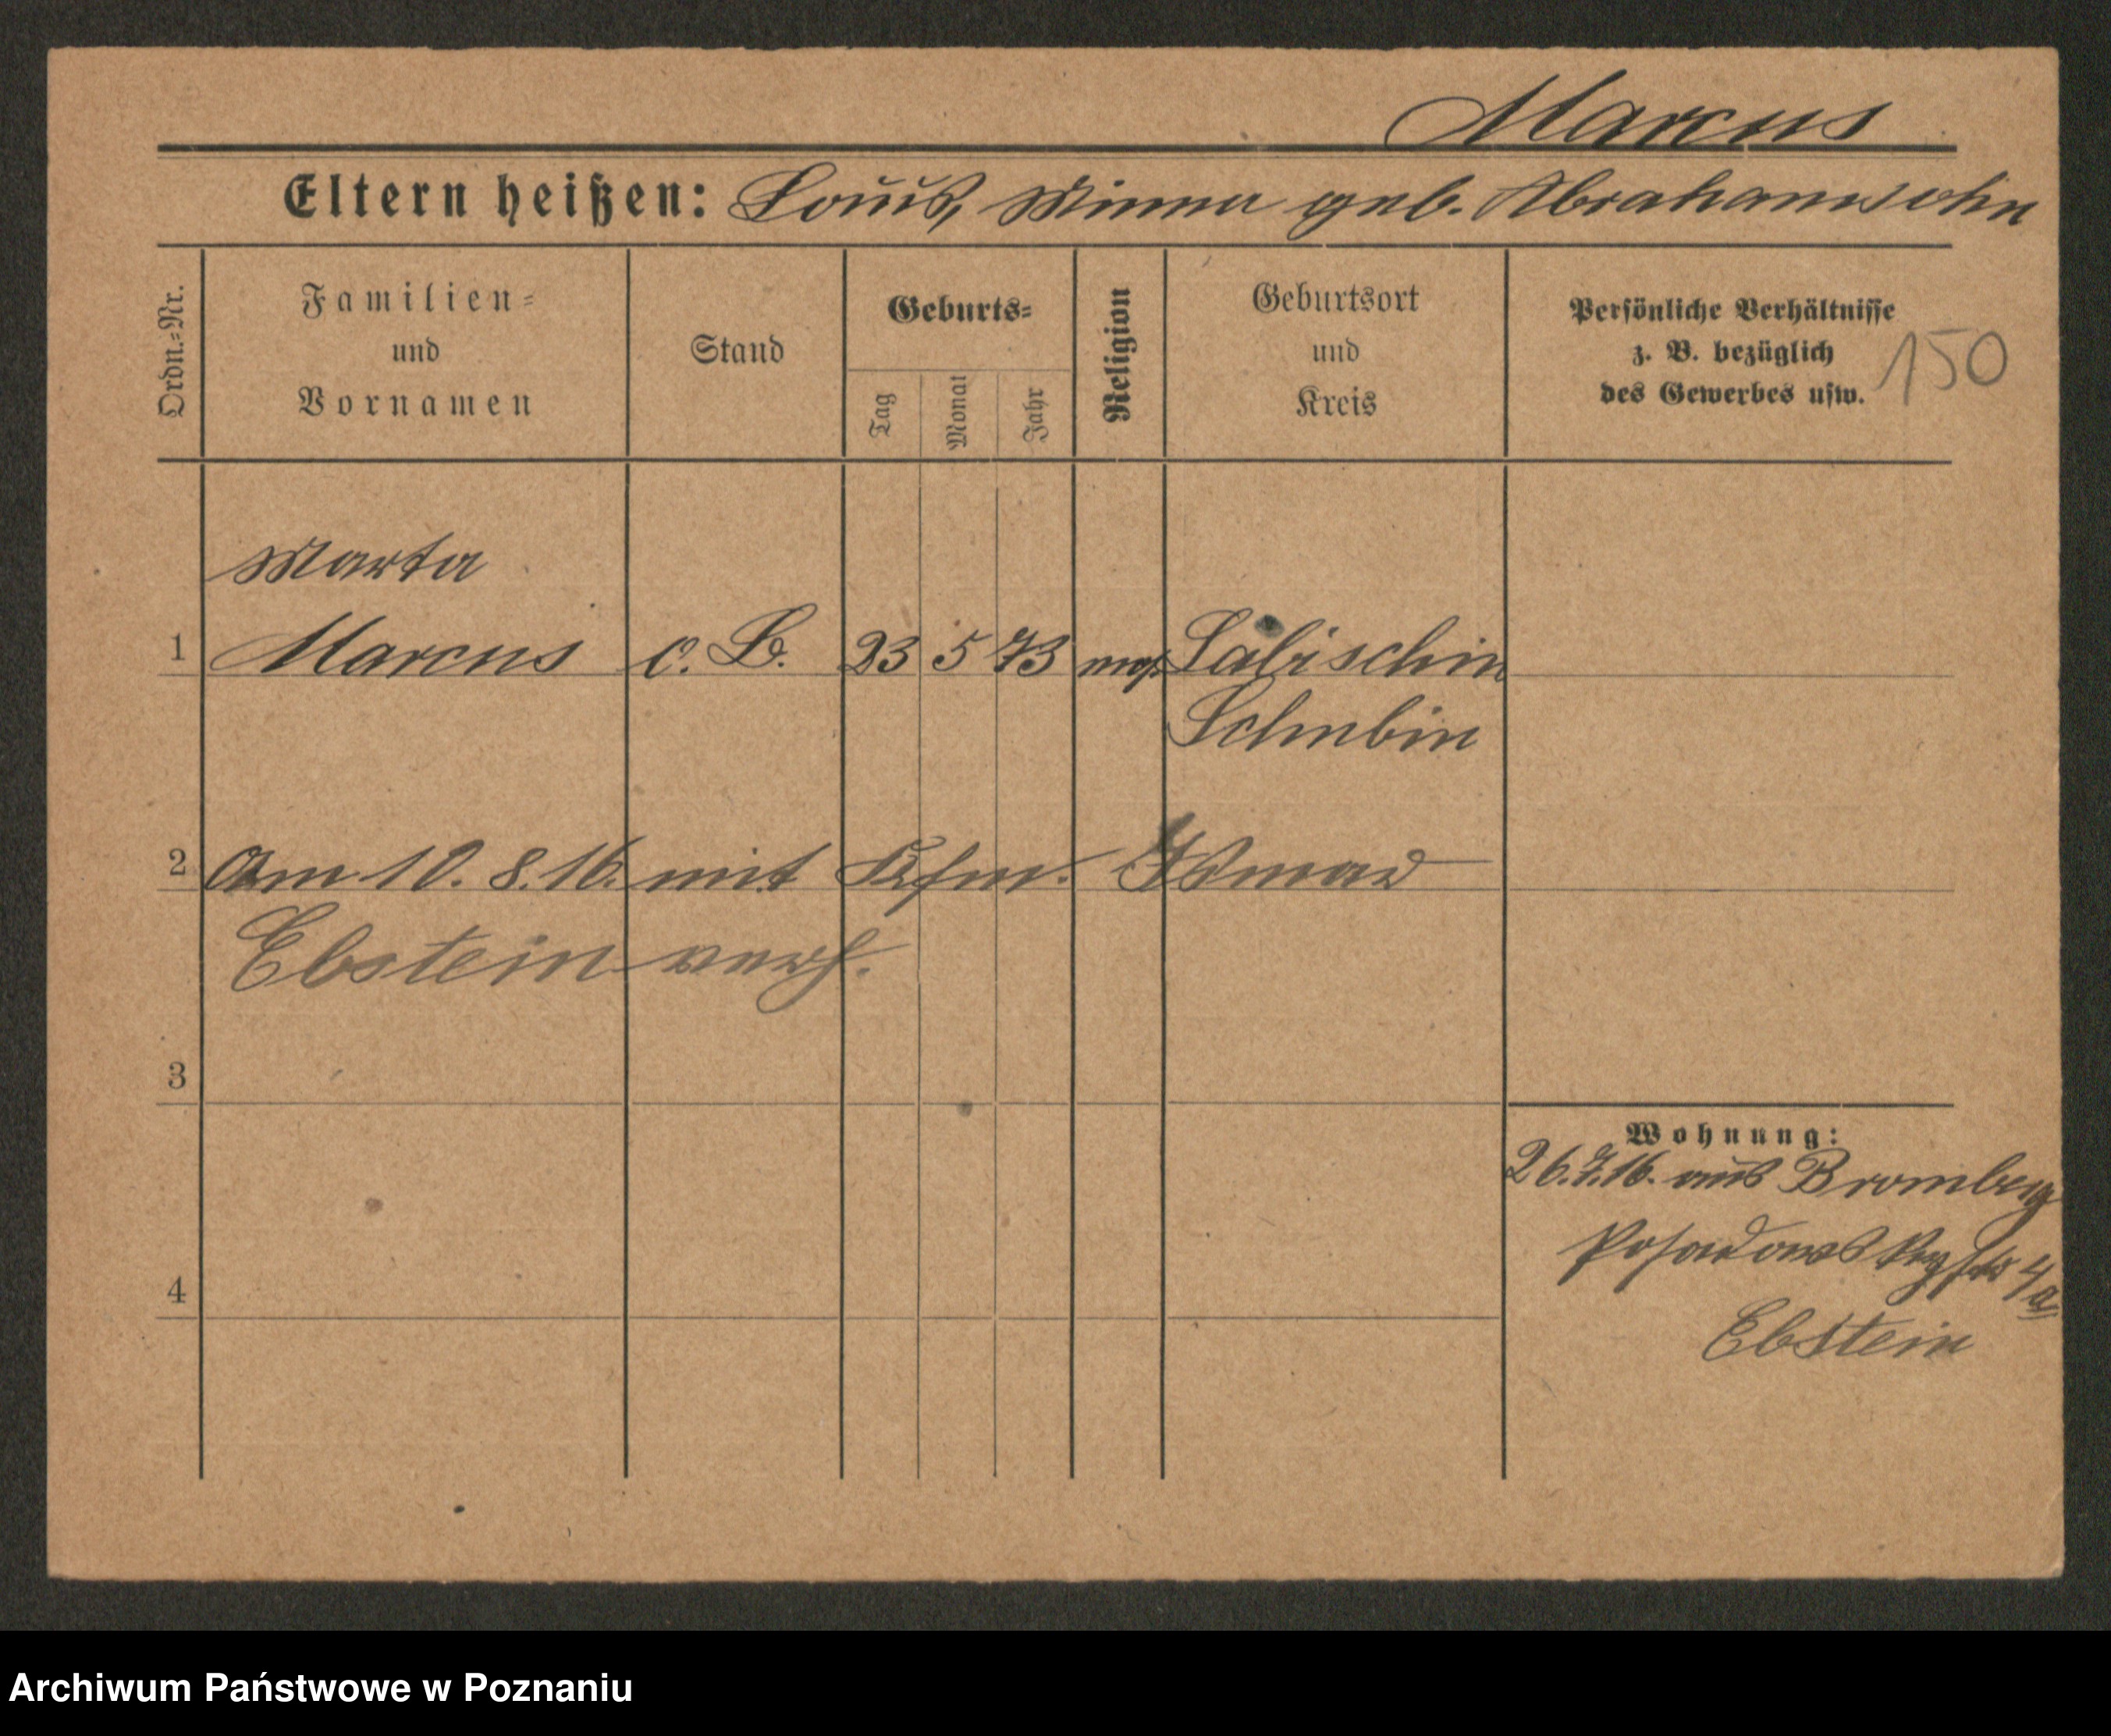 Marcus
Eltern heißen: Louis, Minna geb. Abrahamsohn
Ordn.=Nr.
Familien=
und
Vornamen
Stand
Geburts=
Tag
Monat
Jahr
Religion
Geburtsort
und
Kreis
Persönliche Verhältnisse
z. B. bezüglich
des Gewerbes usw.
150
Marta
1 Marcus o. B. 23 5 73 mos. Labischin
Schubin
2 Am 10. 8. 16. mit Kfm.
Ebstein verh.
3
4
Wohnung:
26.7.16. aus Bromberg
Posadowskystr 4a
Ebstein
Archiwum Państwowe w Poznaniu